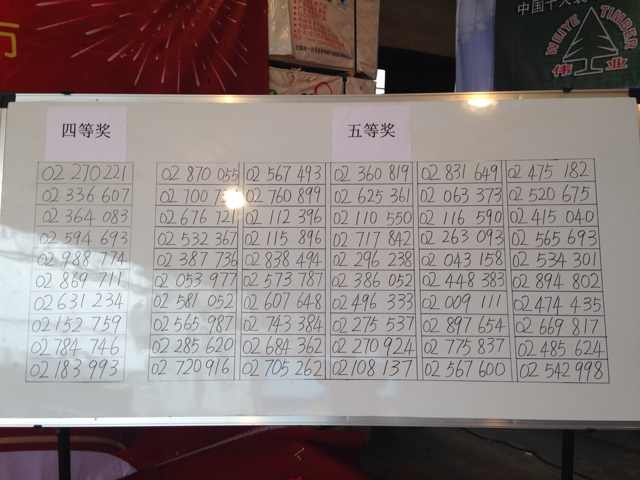 中国十大
WEIYE TIMBER
伟业
四等奖
五等奖
02 270221
02 870 055 02 567 493 02 360 819 02 831 649 02 475 182
02 336 607
02 700 02 760 899 02 625 361 02 063 373 02 520 675
02 364 083
02 676 721 02 112 396 02 110 550 02 116 590 02 415 040
02 594 693
02 532 367 02 115 896 02 717 842 02 263 093 02 565 693
02 988 774
02 387 736 02 838 494 02 296 238 02 043 158 02 534 301
02 869 711
02 053 977 02 573 787 02 386 052 02 448 383 02 894 802
02 631 234
02 581 052 02 607 648 02 496 333 02 009 111 02 474 435
02 152 759
02 565 987 02 743 384 02 275 537 02 897 654 02 669 817
02 784 746
02 285 620 02 684 362 02 270 924 02 775 837 02 485 624
02 183 993
02 720 916 02 705 262 02 108 137 02 567 600 02 542 998